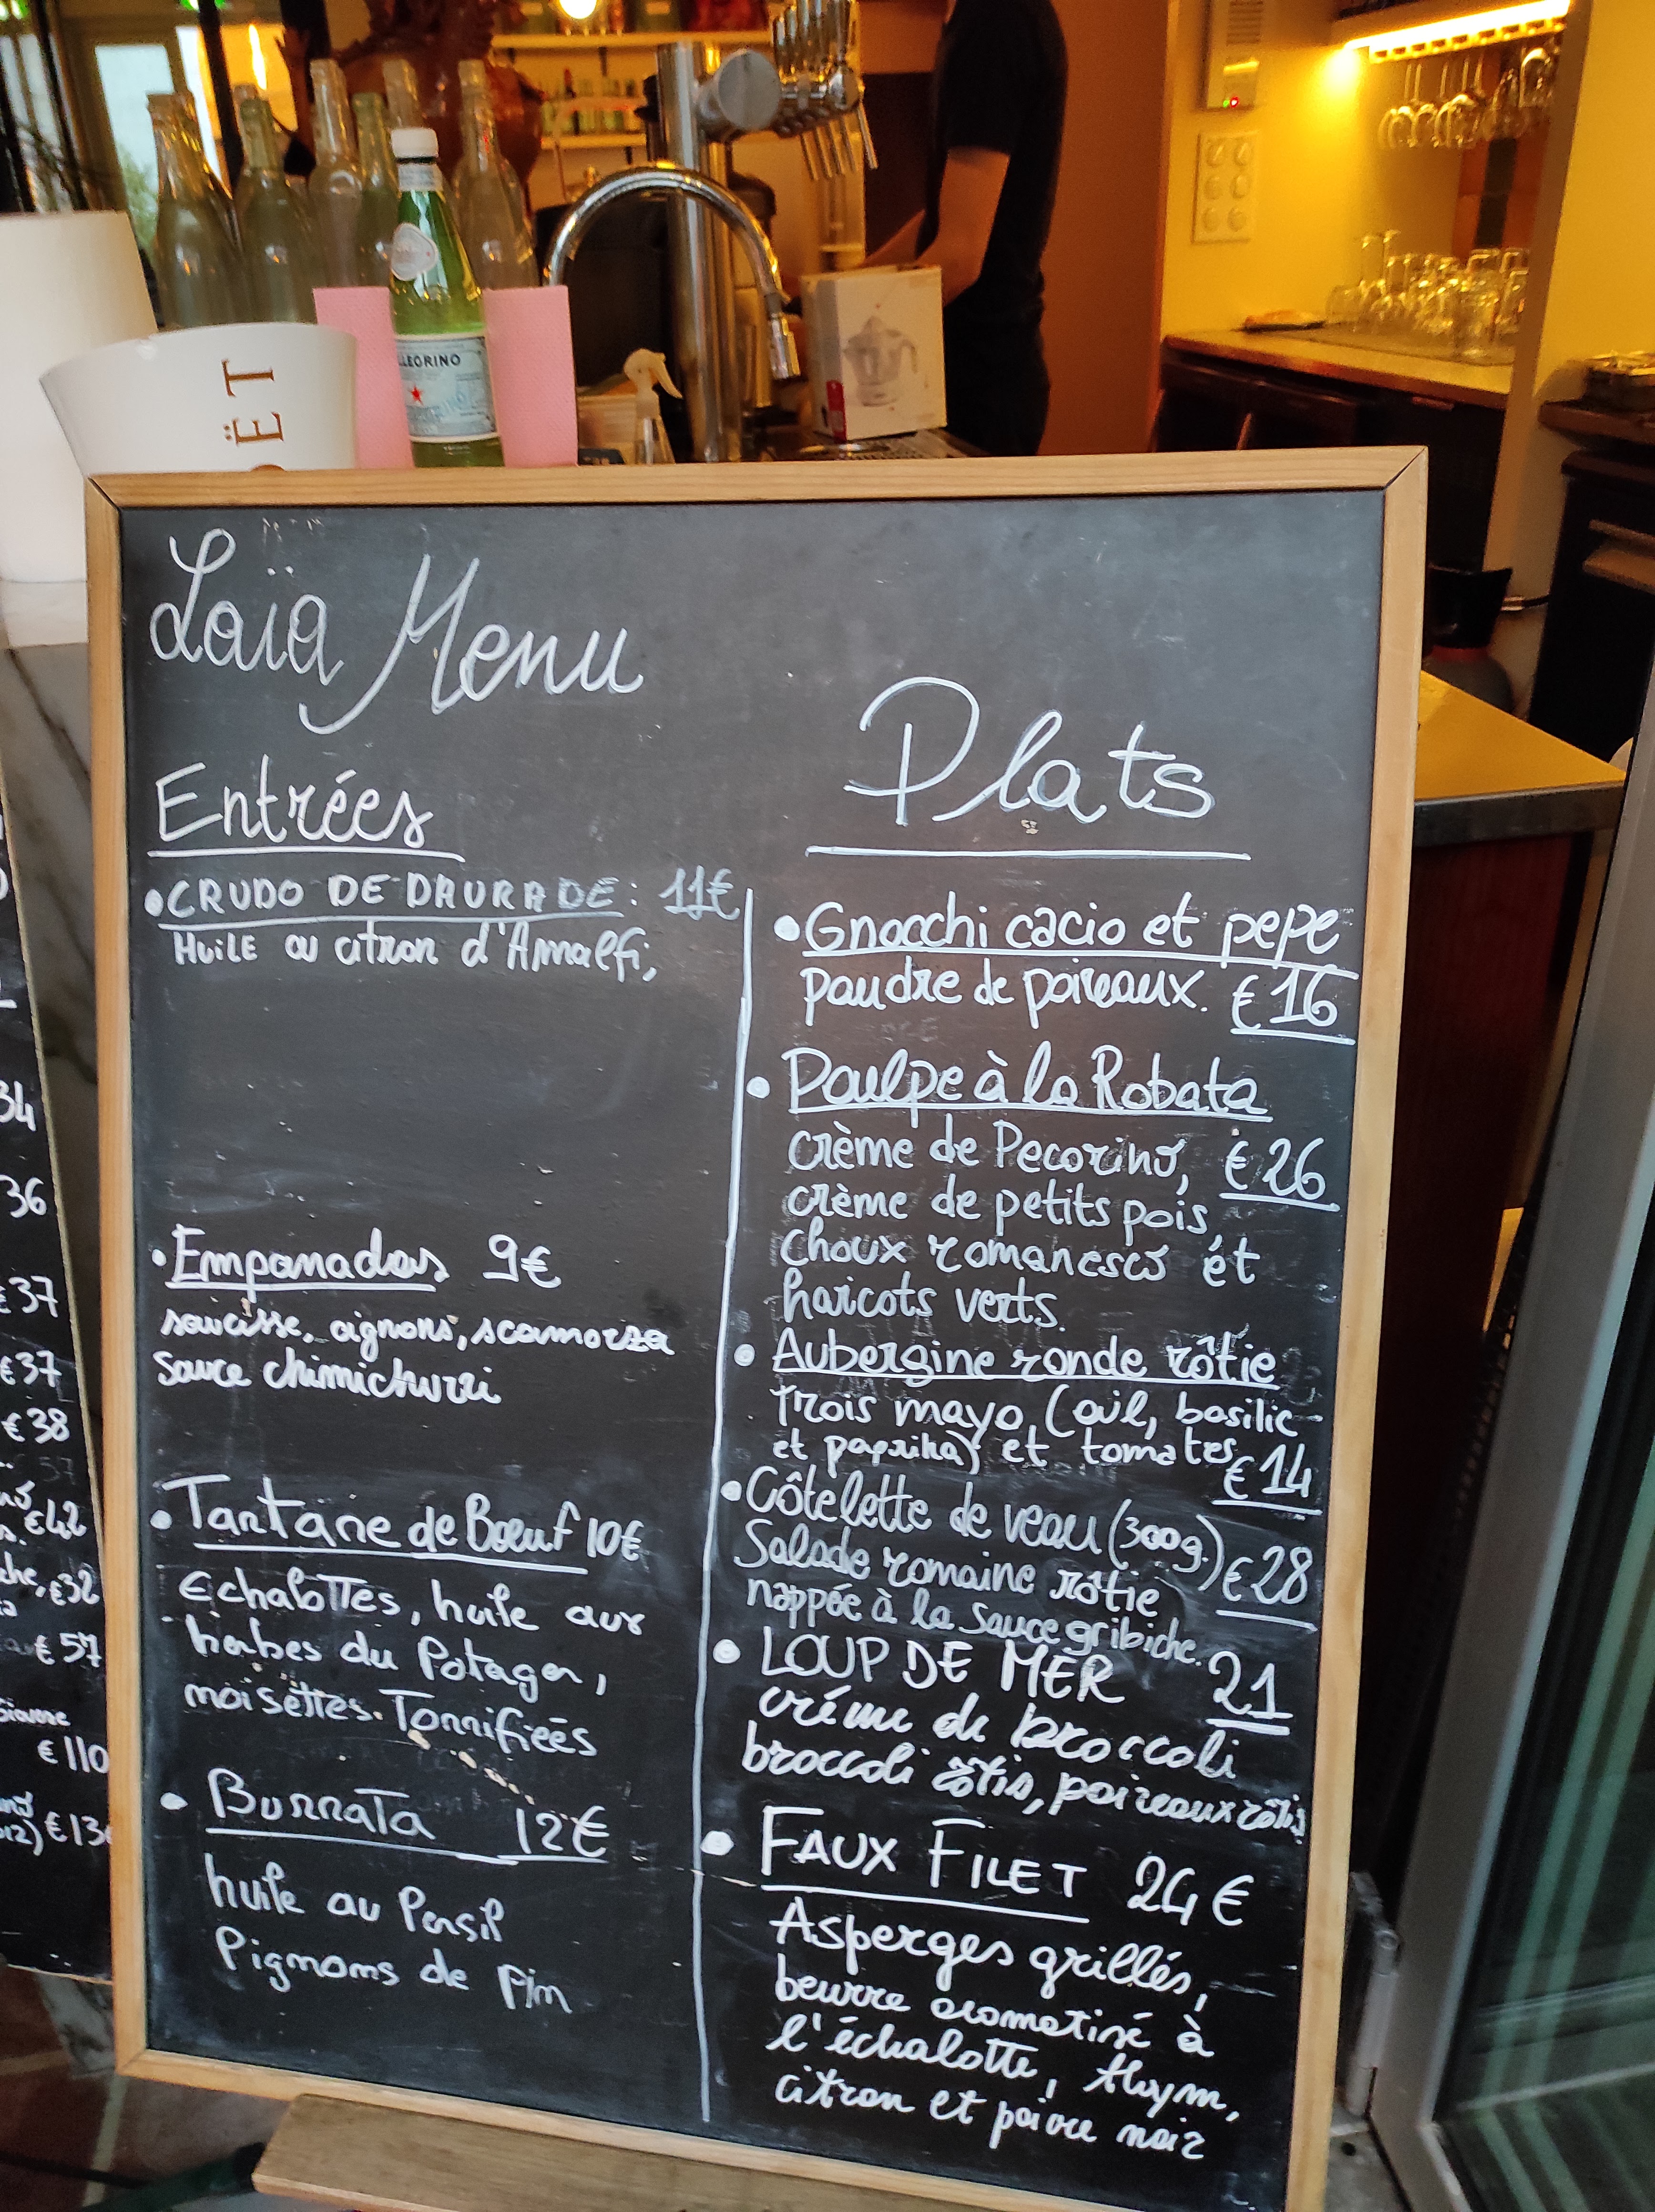 LEGRINO
OËT
Laïa Menu
Entrées
•CRUDO DE DAURADE: 11€
HUILE au citron d'Amalfi,
•Empanadas 9€
saucisse, oignons, scamorza
sauce chimichurri
•Tartare de Bœuf 10€
Echalottes, huile aux
herbes du Potager,
noisettes Torrifiées
• BurraTa 12€
huile au Persil
Pignons de Pin
Plats
•Gnocchi cacio et pepe
poudre de poireaux. €16
• Poulpe à la Robata
crème de Pecorino, €26
crème de petits pois
choux romanesco et
haricots verts.
• Aubergine ronde rôtie
trois mayo (ail, basilic
et paprika) et tomates €14
•Côtelette de veau (300g.) €28
Salade romaine rôtie
nappée à la sauce gribiche.
• LOUP DE MER 21
créme de broccoli
broccoli rôtis, poireaux rôtis
• FAUX FILET 24€
Asperges grillés,
beurre aromatisé à
l'échalotte, thym,
citron et poivre noir
34
36
€37
€37
€38
€42
che, €32
€57
€110
€13